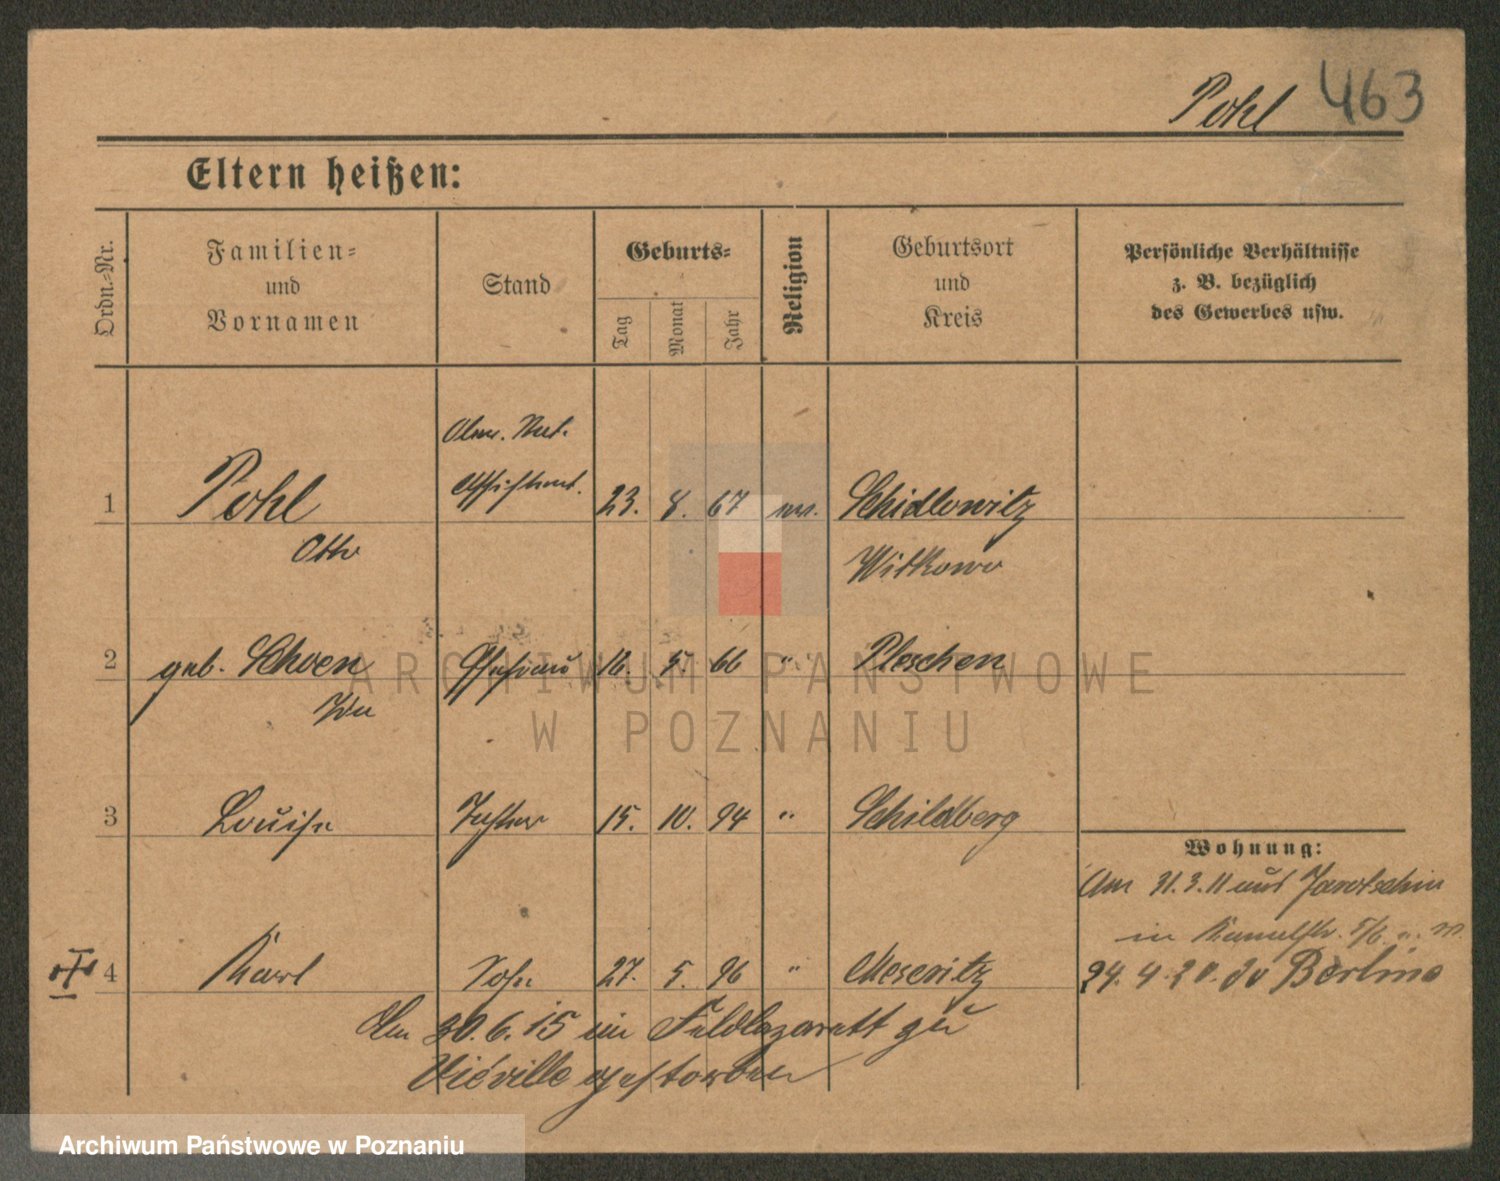 Pohl 463
Eltern heißen:
Ordn.-Nr.
Familien-
und
Vornamen
Stand
Geburts-
Tag
Monat
Jahr
Religion
Geburtsort
und
Kreis
Persönliche Verhältnisse
z. B. bezüglich
des Gewerbes usw.
Assistent.
1 Pohl 23. 8. 67 ev. Schidlowitz
Otto Witkowo
2 geb. Schoen Ehefrau 16. 5. 66 " Pleschen
Ida
3 Louise Tochter 15. 10. 94 " Schildberg
Wohnung:
Am 31.3.11 aus Jarotschin
in
4 Karl Sohn 27. 5. 96 " Meseritz
24.4.20. Berlin
Am 30.6.15 im Feldlazarett zu
Viéville gestorben
ARCHIWUM PAŃSTWOWE
W POZNANIU
Archiwum Państwowe w Poznaniu